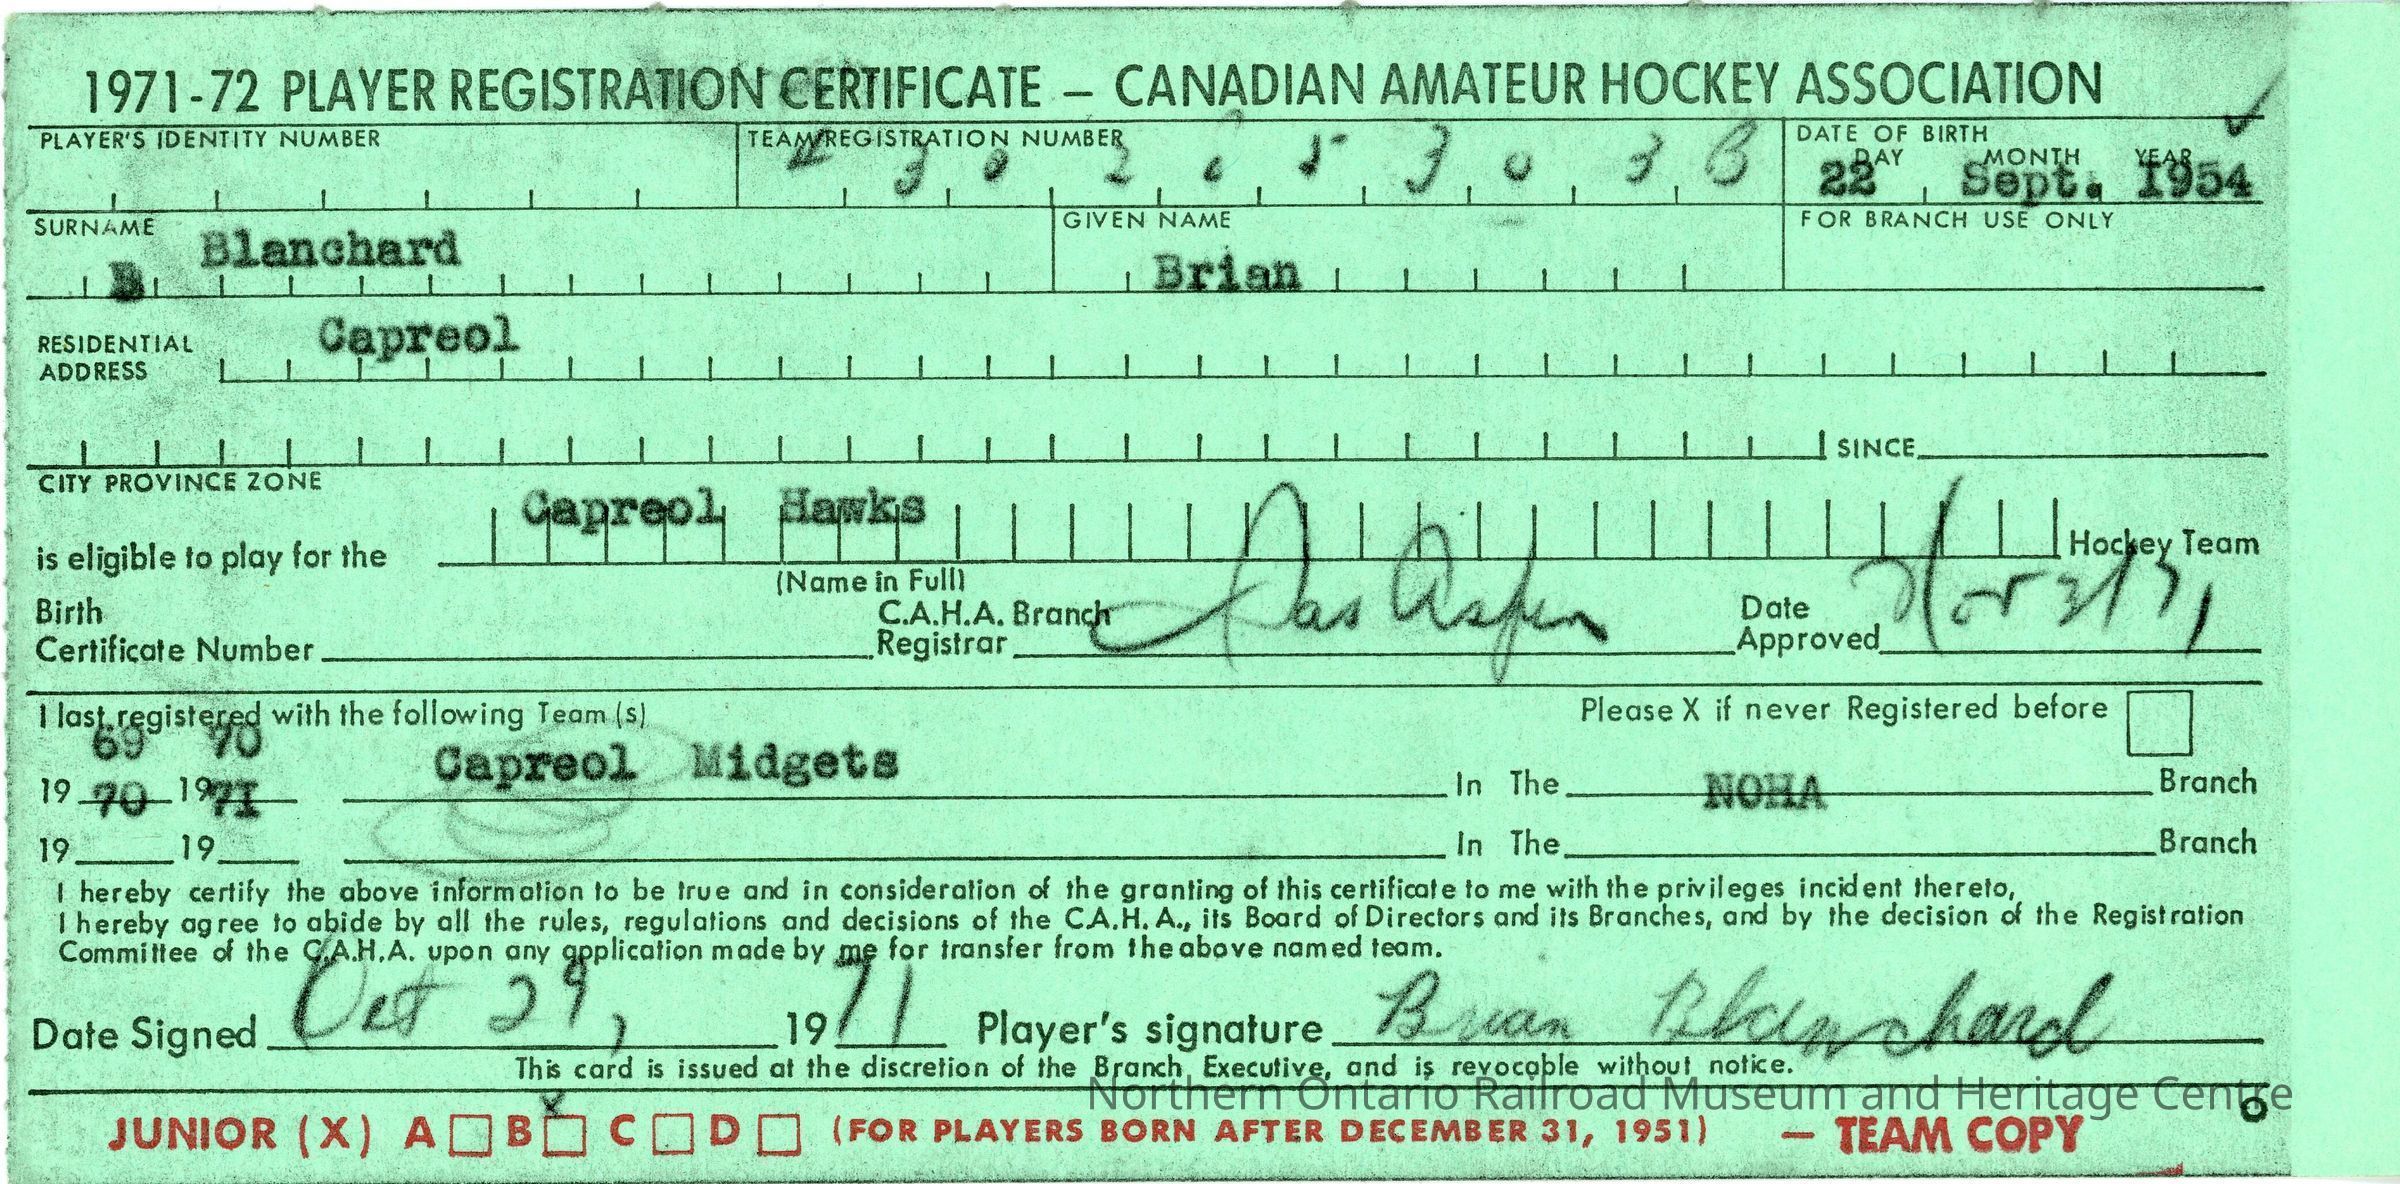 1971-72 PLAYER REGISTRATION CERTIFICATE — CANADIAN AMATEUR HOCKEY ASSOCIATION
PLAYER'S IDENTITY NUMBER TEAM/REGISTRATION NUMBER DATE OF BIRTH
DAY MONTH YEAR
22 Sept. 1954
SURNAME Blanchard GIVEN NAME Brian FOR BRANCH USE ONLY
RESIDENTIAL ADDRESS Capreol
SINCE
CITY PROVINCE ZONE
is eligible to play for the Capreol Hawks Hockey Team
(Name in Full)
Birth Certificate Number C.A.H.A. Branch Registrar Date Approved
I last registered with the following Team (s) Please X if never Registered before
69 70
19 70 1971 Capreol Midgets In The NOHA Branch
19 19 In The Branch
I hereby certify the above information to be true and in consideration of the granting of this certificate to me with the privileges incident thereto,
I hereby agree to abide by all the rules, regulations and decisions of the C.A.H.A., its Board of Directors and its Branches, and by the decision of the Registration
Committee of the C.A.H.A. upon any application made by me for transfer from the above named team.
Date Signed Oct 29, 1971 Player's signature Brian Blanchard
This card is issued at the discretion of the Branch Executive, and is revocable without notice.
Northern Ontario Railroad Museum and Heritage Centre
JUNIOR (X) A B x C D (FOR PLAYERS BORN AFTER DECEMBER 31, 1951) — TEAM COPY